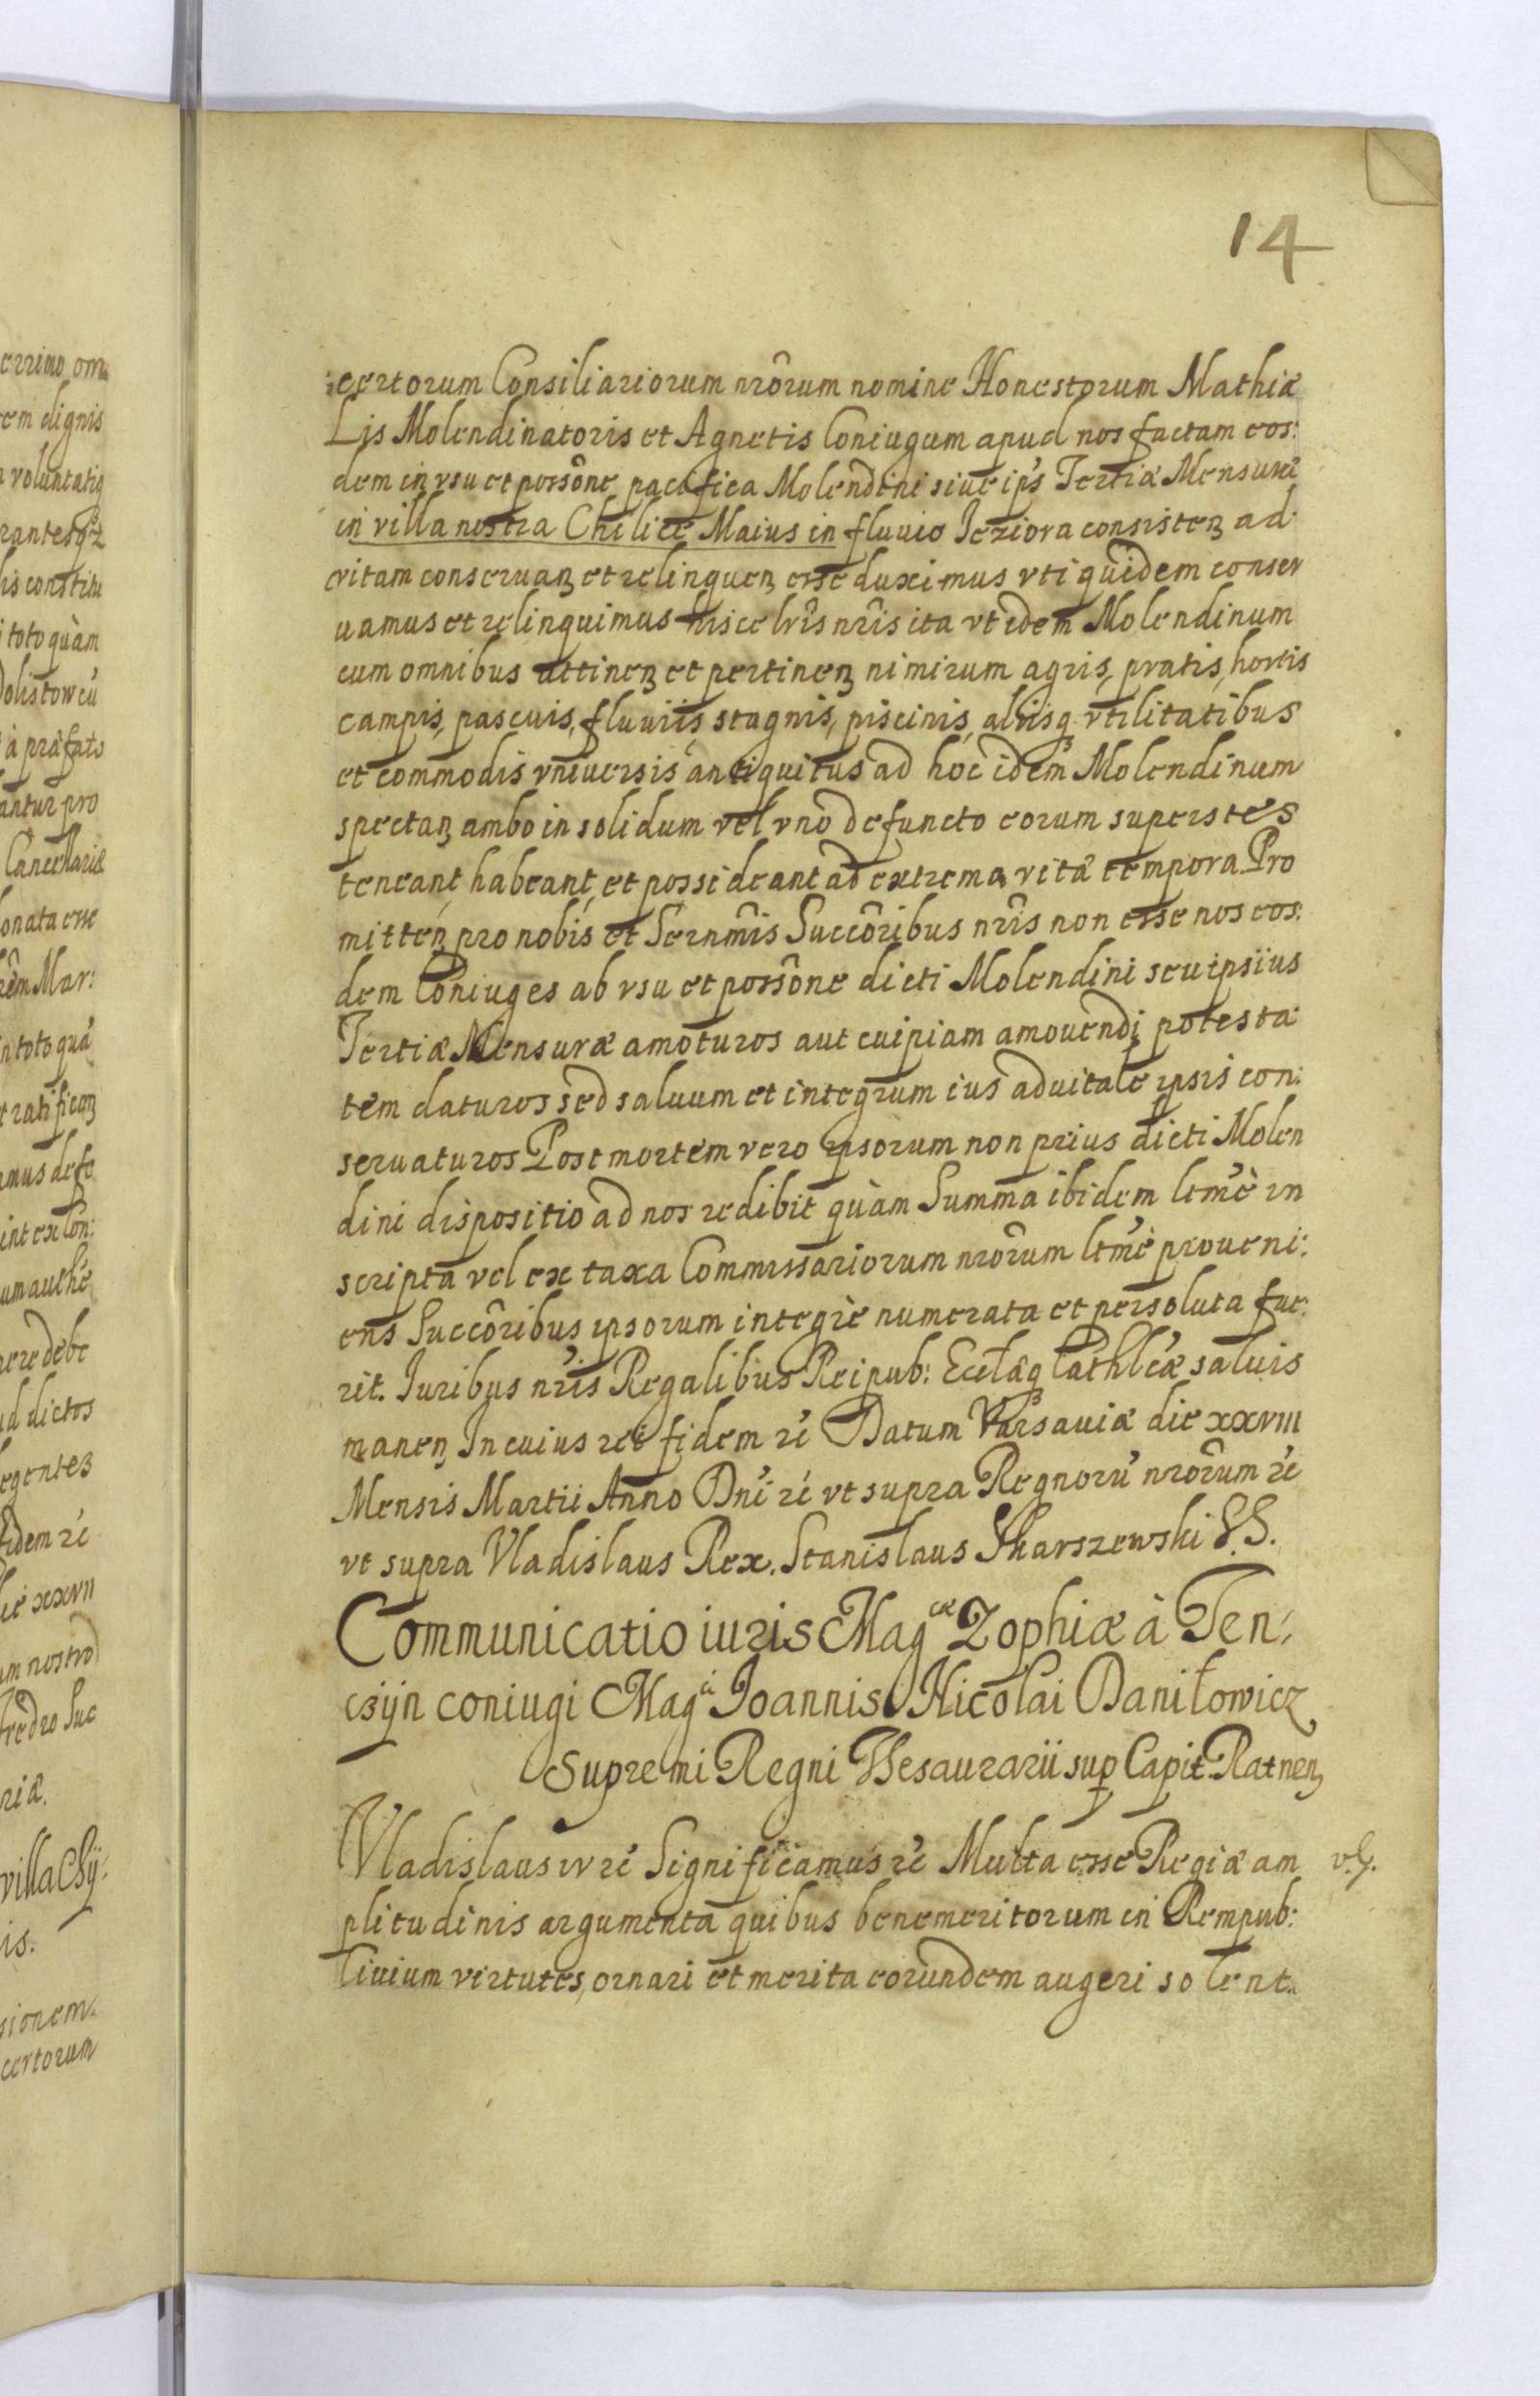 14
certorum Consiliariorum nrôrum nomine Honestorum Mathiæ
Lis Molendinatoris et Agnetis Coniugum apud nos factam eos:
dem in vsu et possône pacifica Molendini siue ips Tertiæ Mensuræ
in villa nostra Chilice Maius in fluuio Jeziora consisteñ ad
vitam conseruañ et relinqueñ esse duximus vti quidem conser
uamus et relinquimus hisce lrîs nrîs ita vt idem Molendinum
cum omnibus attineñ et pertineñ nimirum agris, pratis, hortis
campis, pascuis, fluuiis stagnis, piscinis, aliisqȝ vtilitatibus
et commodis vniuersis antiquitus ad hoc idem Molendinum
spectañ ambo in solidum vel vno defuncto eorum superstes
teneant, habeant, et possideant ad extrema vitæ tempora Pro
mitteñ pro nobis et Sernmîs Succôribus nrîs non esse nos eos:
dem Coniuges ab vsu et possône dicti Molendini seu ipsiius
Tertiæ Mensuræ amoturos aut cuipiam amouendi potesta
tem daturos sed saluum et integrum ius aduitale ipsis con:
seruaturos Post mortem vero ipsorum non prius dicti Molen
dini dispositio ad nos redibit quàm Summa ibidem ltmé in
scripta vel ex taxa Commissariorum nrôrum ltmé proueni:
ens Succôribus ipsorum integrè numerata et persoluta fue:
rit. Juribus nrîs Regalibus Reipub: Ecclâqȝ Cathlcæ saluis
maneñ In cuius rei fidem ré Datum Varsauiæ die xxviii
Mensis Martii Anno Dni ré vt supra Regnorú nrôrum ré
vt supra Vladislaus Rex. Stanislaus Skarszewski S.S.
Communicatio iuris Magcæ Zophiæ à Ten,
csijn coniugi Magci Joannis Nicolai Daniłowicz
Supremi Regni Thesaurarii sup Capit Ratneñ
Vladislaus iv ré Significamus ré Multa esse Regiæ am
plitudinis argumenta quibus benemeritorum in Rempub:
Ciuium virtutes, ornari et merita eorundem augeri solent.